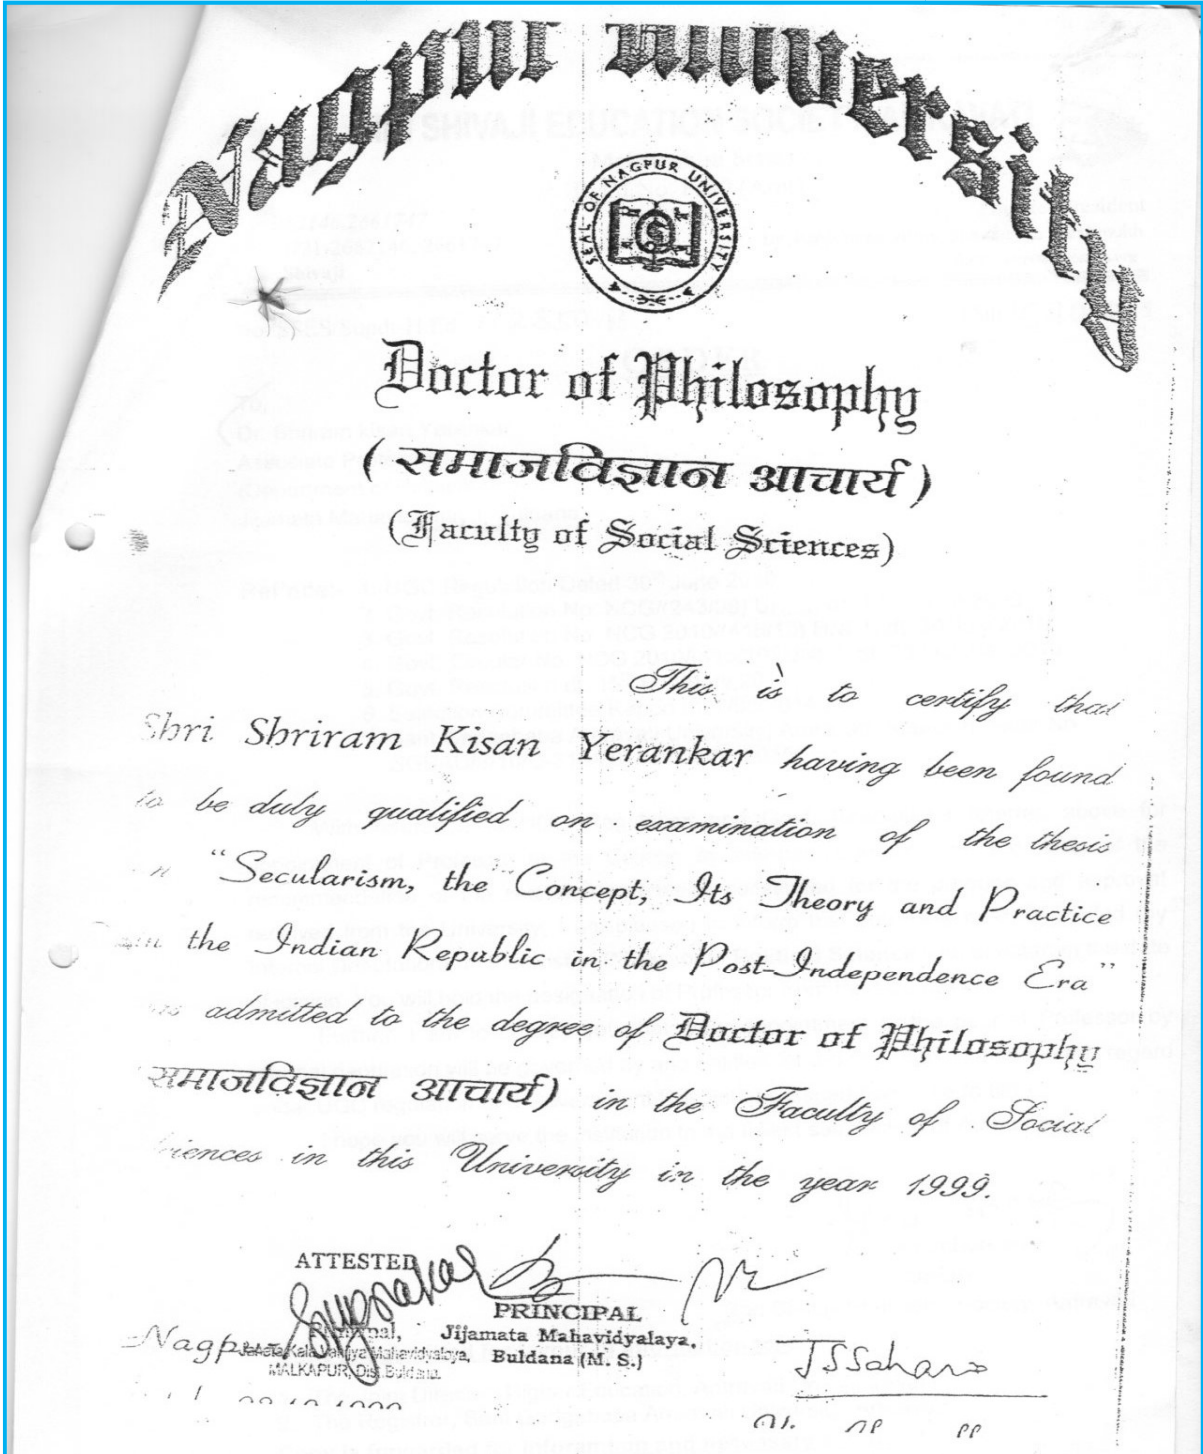 Nagpur University
SEAL OF NAGPUR UNIVERSITY
Doctor of Philosophy
(समाजविज्ञान आचार्य)
(Faculty of Social Sciences)
This is to certify that
Shri Shriram Kisan Yerankar having been found
to be duly qualified on examination of the thesis
"Secularism, the Concept, Its Theory and Practice
the Indian Republic in the Post-Independence Era"
admitted to the degree of Doctor of Philosophy
समाजविज्ञान आचार्य) in the Faculty of Social
iences in this University in the year 1999.
ATTESTED
PRINCIPAL
Jijamata Mahavidyalaya,
Buldana (M. S.)
Principal,
Mahavidyalaya,
MALKAPUR, Dist. Buldana.
Nagp